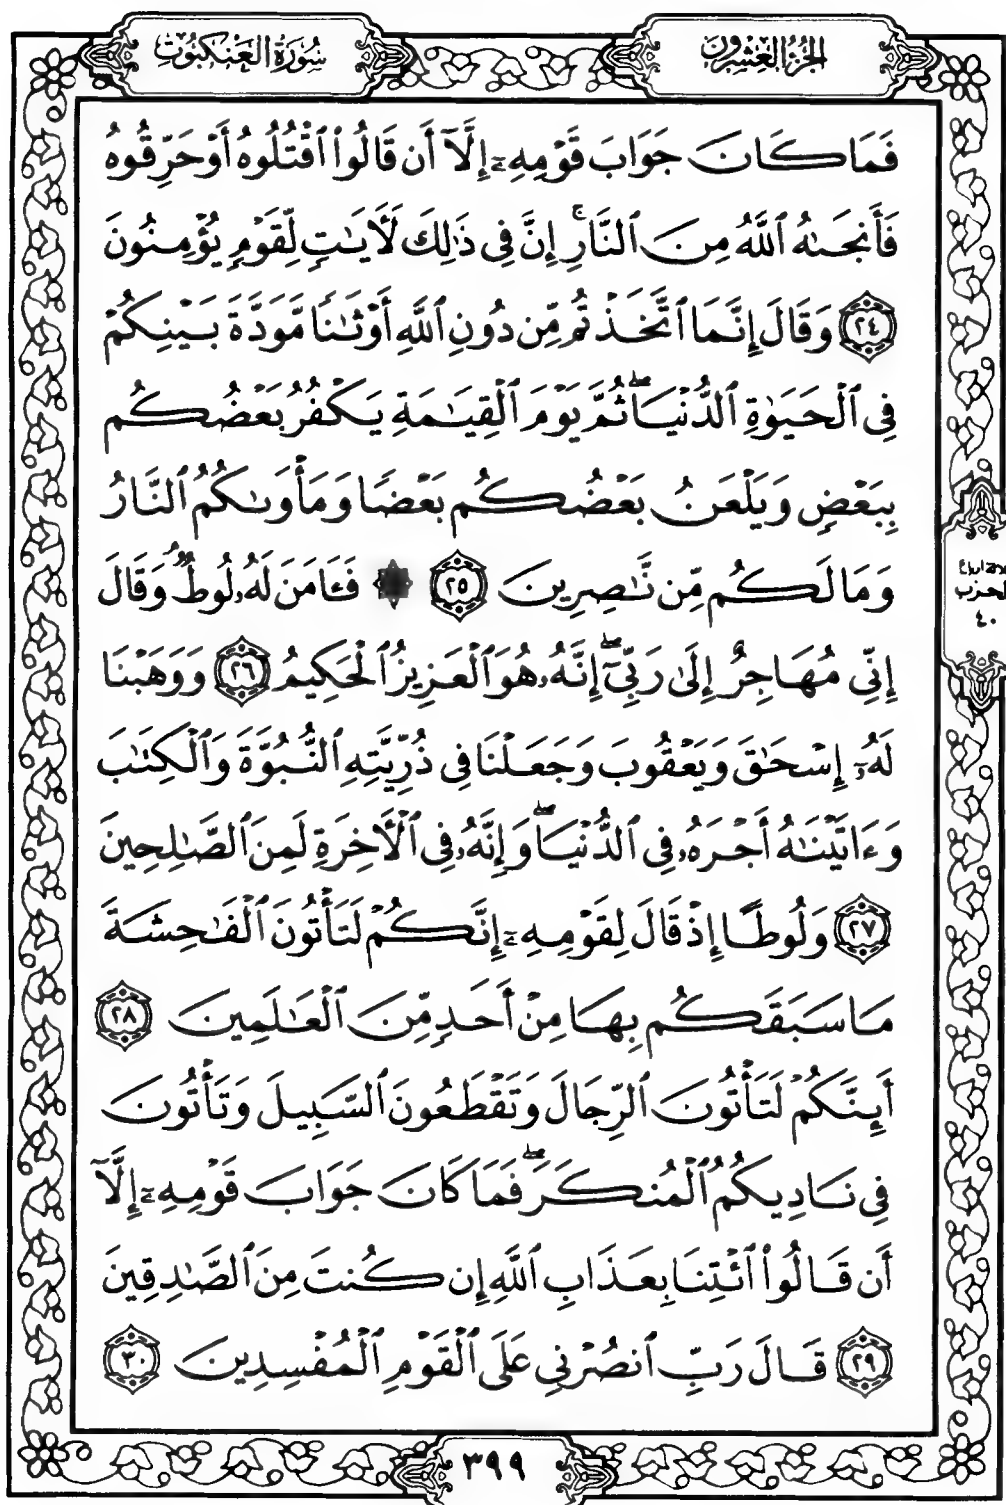 الجزء العشرون
سورة العنكبوت
فَمَا كَانَ جَوَابَ قَوْمِهِۦٓ إِلَّآ أَن قَالُوا۟ ٱقْتُلُوهُ أَوْ حَرِّقُوهُ
فَأَنجَىٰهُ ٱللَّهُ مِنَ ٱلنَّارِ ۚ إِنَّ فِى ذَٰلِكَ لَـَٔايَٰتٍ لِّقَوْمٍ يُؤْمِنُونَ
٢٤ وَقَالَ إِنَّمَا ٱتَّخَذْتُم مِّن دُونِ ٱللَّهِ أَوْثَٰنًا مَّوَدَّةَ بَيْنِكُمْ
فِى ٱلْحَيَوٰةِ ٱلدُّنْيَا ۖ ثُمَّ يَوْمَ ٱلْقِيَٰمَةِ يَكْفُرُ بَعْضُكُم
بِبَعْضٍ وَيَلْعَنُ بَعْضُكُم بَعْضًا وَمَأْوَىٰكُمُ ٱلنَّارُ
وَمَا لَكُم مِّن نَّٰصِرِينَ ٢٥ ۞ فَـَٔامَنَ لَهُۥ لُوطٌ ۘ وَقَالَ
إِنِّى مُهَاجِرٌ إِلَىٰ رَبِّىٓ ۖ إِنَّهُۥ هُوَ ٱلْعَزِيزُ ٱلْحَكِيمُ ٢٦ وَوَهَبْنَا
لَهُۥٓ إِسْحَٰقَ وَيَعْقُوبَ وَجَعَلْنَا فِى ذُرِّيَّتِهِ ٱلنُّبُوَّةَ وَٱلْكِتَٰبَ
وَءَاتَيْنَٰهُ أَجْرَهُۥ فِى ٱلدُّنْيَا ۖ وَإِنَّهُۥ فِى ٱلْـَٔاخِرَةِ لَمِنَ ٱلصَّٰلِحِينَ
٢٧ وَلُوطًا إِذْ قَالَ لِقَوْمِهِۦٓ إِنَّكُمْ لَتَأْتُونَ ٱلْفَٰحِشَةَ
مَا سَبَقَكُم بِهَا مِنْ أَحَدٍ مِّنَ ٱلْعَٰلَمِينَ ٢٨
أَئِنَّكُمْ لَتَأْتُونَ ٱلرِّجَالَ وَتَقْطَعُونَ ٱلسَّبِيلَ وَتَأْتُونَ
فِى نَادِيكُمُ ٱلْمُنكَرَ ۖ فَمَا كَانَ جَوَابَ قَوْمِهِۦٓ إِلَّآ
أَن قَالُوا۟ ٱئْتِنَا بِعَذَابِ ٱللَّهِ إِن كُنتَ مِنَ ٱلصَّٰدِقِينَ
٢٩ قَالَ رَبِّ ٱنصُرْنِى عَلَى ٱلْقَوْمِ ٱلْمُفْسِدِينَ ٣٠
الحزب
٤٠
٣٩٩